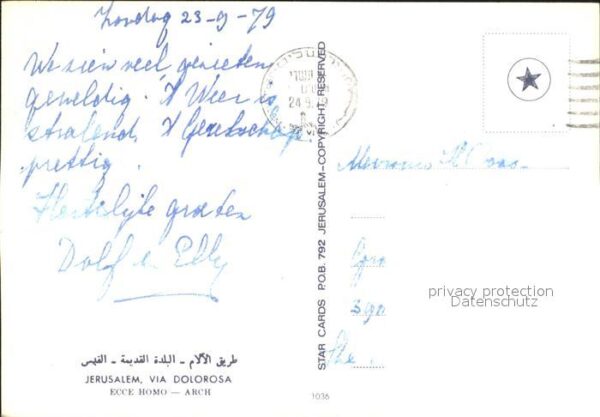 Zondag 23-9-79
We zien veel genieten
geweldig. 't Weer is
stralend. 't Gezelschap
prettig.
Hartelijke groeten
Dolf en Elly
طريق الآلام - البلدة القديمة - القدس
JERUSALEM, VIA DOLOROSA
ECCE HOMO — ARCH
STAR CARDS P.O.B. 792 JERUSALEM-COPYRIGHT RESERVED
1036
24.9.
Mevrouw
privacy protection
Datenschutz
The